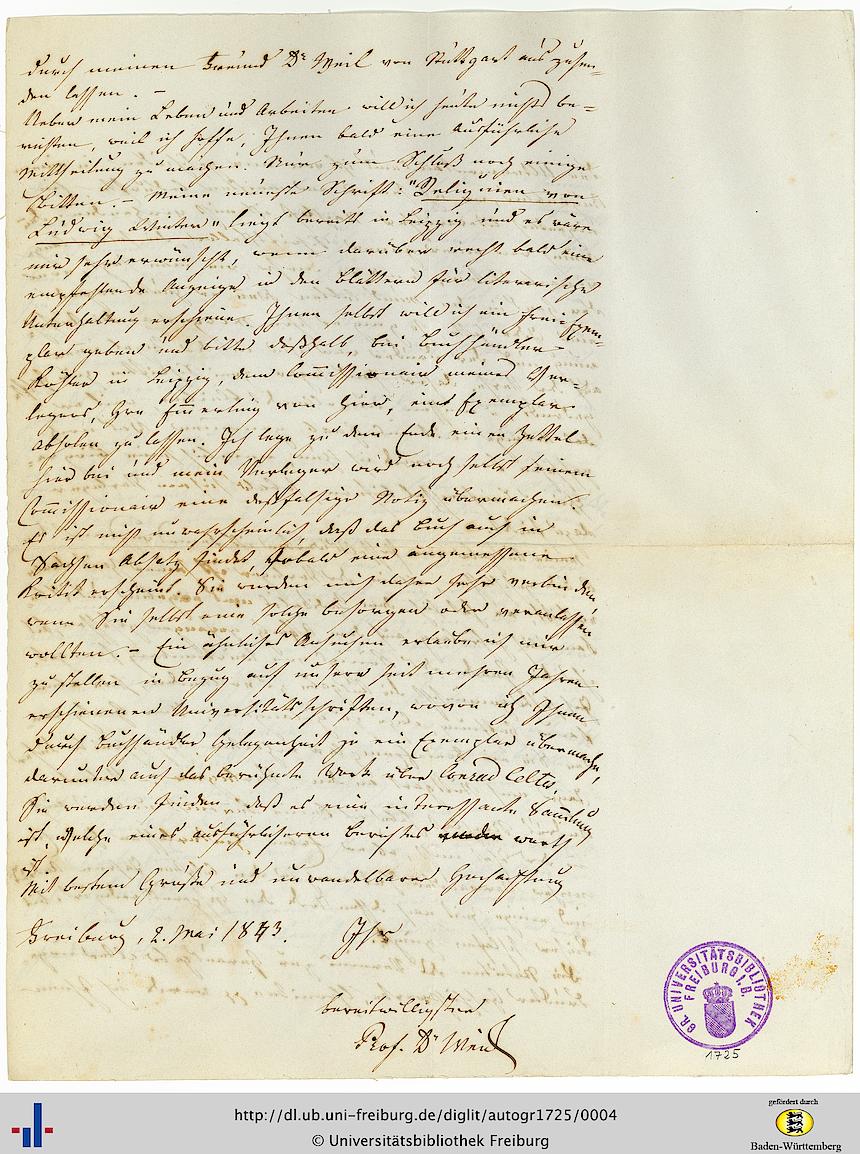 durch meinen Freund Dr Weil von Stuttgart aus zusen-
den lassen. –
Ueber mein Leben und Arbeiten will ich heute nichts be-
richten, weil ich hoffe, Ihnen bald eine ausführliche
Mittheilung zu machen. Nur zum Schluß noch einige
Bitten. – Meine neueste Schrift: "Reliquien von
Ludwig Winter" liegt bereits in Leipzig und es wäre
mir sehr erwünscht, wenn darüber recht bald eine
empfehlende Anzeige in den Blättern für literarische
Unterhaltung erschiene. Ihnen selbst will ich ein Frei-Exem-
plar geben und bitte deßhalb, bei Buchhändler
Köhler in Leipzig, dem Commissionair meines Ver-
legers, Hrn Emmerling von hier, ein Exemplar
abholen zu lassen. Ich lege zu dem Ende einen Zettel
hier bei und mein Verleger wird noch selbst seinem
Commissionair eine deßfalsige Notiz übermachen.
Es ist nicht unwahrscheinlich, daß das Buch auch in
Sachsen Absatz findet, sobald eine angemessene
Kritik erscheint. Sie würden mich daher sehr verbinden,
wenn Sie selbst eine solche besorgen oder veranlassen
wollten. – Ein ähnliches Ansuchen erlaube ich mir
zu stellen in Bezug auf unsere seit mehren Jahren
erschienenen Universitätsschriften, wovon ich Ihnen
durch Buchhändler Gelegenheit je ein Exemplar übermache,
darunter auch das berühmte Werk über Conrad Celtis.
Sie werden finden, daß es eine interessante Sammlung
ist, welche eines ausführlicheren Berichtes werth
ist.
Mit bestem Gruße und unwandelbarer Hochachtung
Freiburg, 2. Mai 1843. Ihr
bereitwilligster
Prof. Dr
GR. UNIVERSITÄTSBIBLIOTHEK
FREIBURG I.B.
1725
http://dl.ub.uni-freiburg.de/diglit/autogr1725/0004
© Universitätsbibliothek Freiburg
gefördert durch
Baden-Württemberg